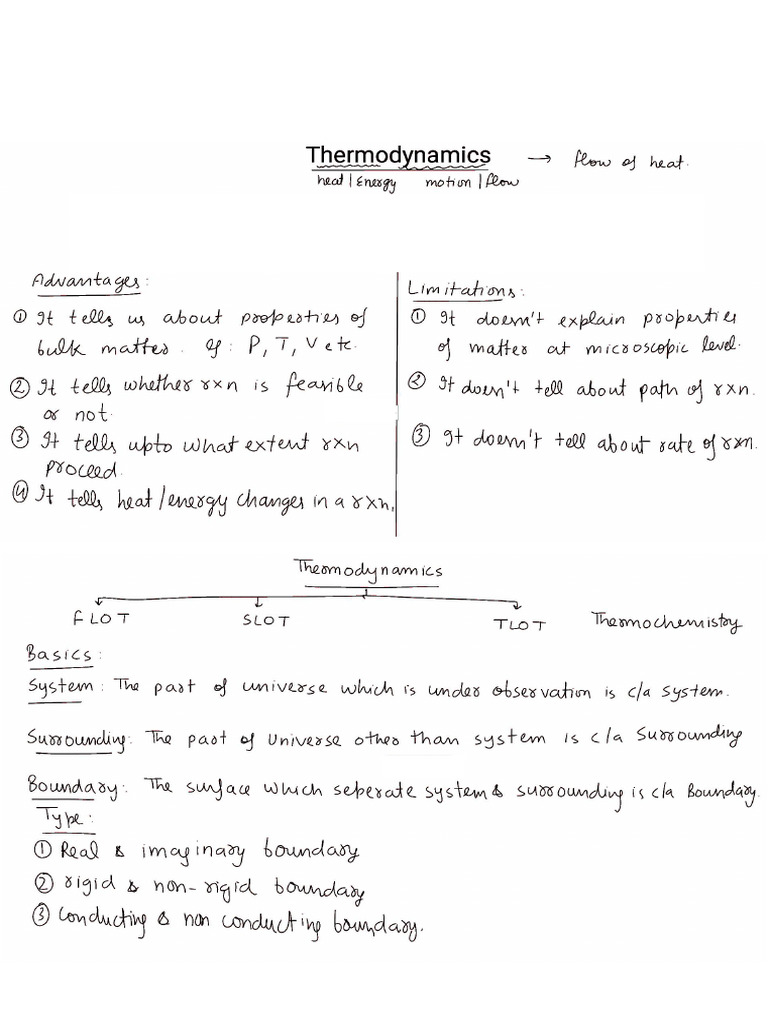 Thermodynamics → flow of heat.
heat | Energy motion | flow
Advantages:
① It tells us about properties of
bulk matter. eg: P, T, V etc.
② It tells whether rxn is feasible
or not.
③ It tells upto what extent rxn
proceed.
④ It tells heat/energy changes in a rxn.
Limitations:
① It doesn't explain properties
of matter at microscopic level.
② It doesn't tell about path of rxn.
③ It doesn't tell about rate of rxn.
Thermodynamics
FLOT SLOT TLOT Thermochemistry
Basics:
System: The part of universe which is under observation is c/a system.
Surrounding: The part of Universe other than system is c/a Surrounding
Boundary: The surface which seperate system & surrounding is c/a Boundary.
Type:
① Real & imaginary boundary
② rigid & non-rigid boundary
③ Conducting & non conducting boundary.